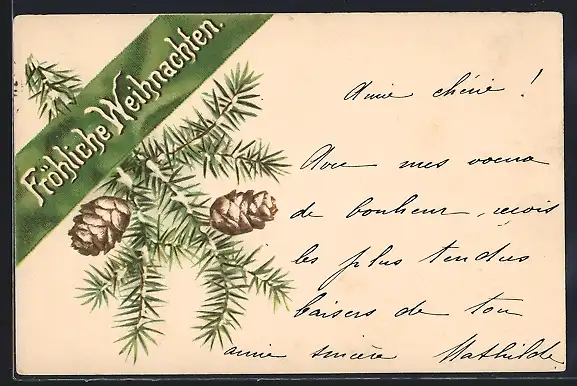 Fröhliche Weihnachten.
Amie chérie !
Avec mes voeux
de bonheur, reçois
les plus tendres
baisers de ton
amie sincère Mathilde